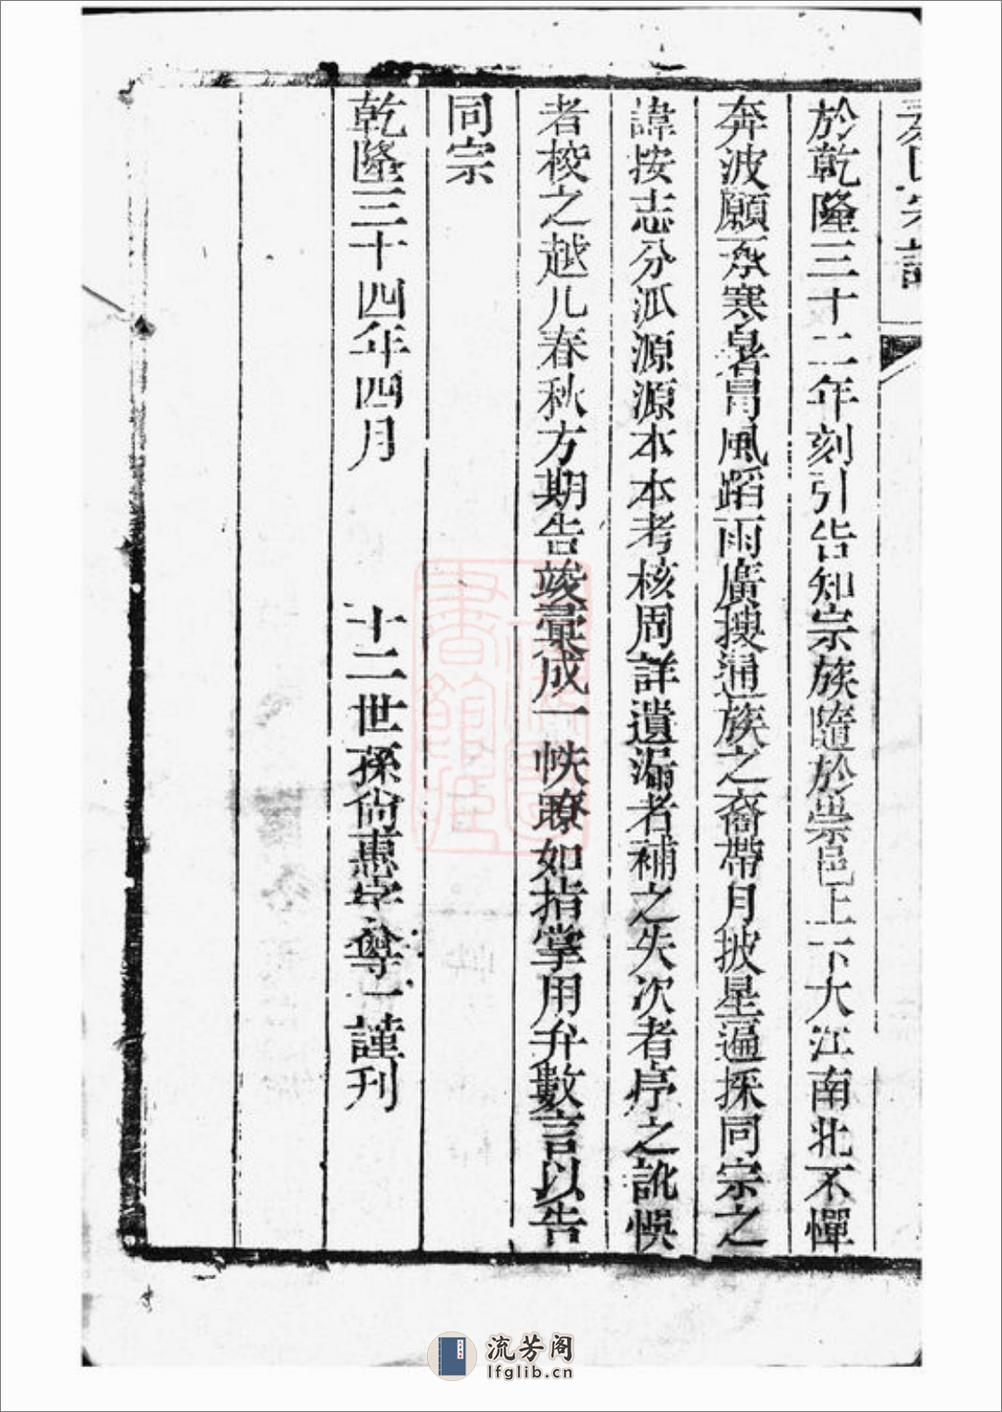 於乾隆三十二年刻引告知宗族隨於崇邑上下大江南北不憚
奔波願承寒暑冒風蹈雨廣搜通族之裔帶月披星遍採同宗之
諱按志分派源源本本考核周詳遺漏者補之失次者序之訛悞
者校之越几春秋方期告竣彙成一帙瞭如指掌用弁數言以告
同宗
乾隆三十四年四月 十二世孫尙惠字奪一謹刊
流芳阁
lfglib.cn